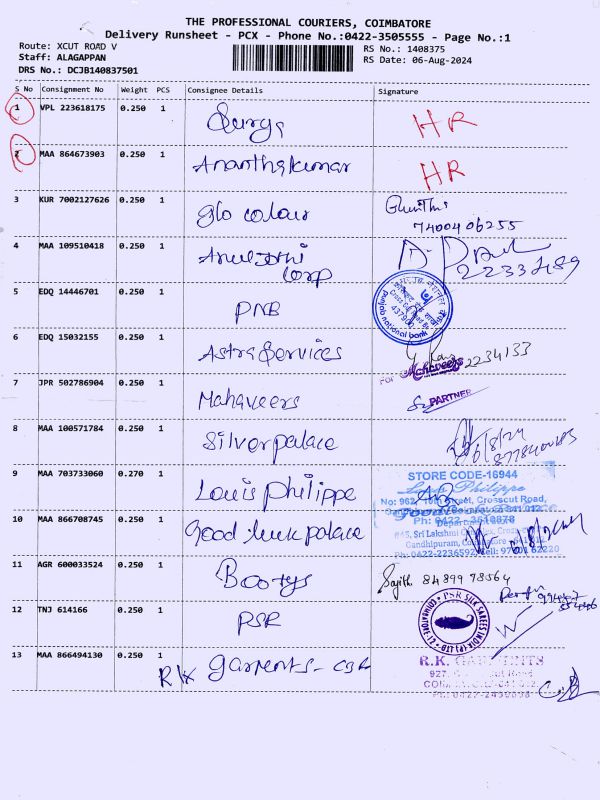 THE PROFESSIONAL COURIERS, COIMBATORE
Delivery Runsheet - PCX - Phone No.:0422-3505555 - Page No.:1
Route: XCUT ROAD V
RS No.: 1408375
Staff: ALAGAPPAN
RS Date: 06-Aug-2024
DRS No.: DCJB140837501
S No Consignment No Weight PCS Consignee Details Signature
1 VPL 223618175 0.250 1 Surya HR
2 MAA 864673903 0.250 1 Ananthakumar HR
3 KUR 7002127626 0.250 1 Glo colour
7400406255
4 MAA 109510418 0.250 1
Corp
5 EDQ 14446701 0.250 1 PNB
punjab national bank
6 EDQ 15032155 0.250 1 Astra Services
2234133
For Mahaveers
7 JPR 502786904 0.250 1 Mahaveers
PARTNER
8 MAA 100571784 0.250 1 Silver palace
6/8/24
9 MAA 703733060 0.270 1 Louis Philippe
STORE CODE-16944
Louis Philippe
Crosscut Road,
10 MAA 866708745 0.250 1 Good luck palace
Gandhipuram,
11 AGR 600033524 0.250 1 Bootys
Sajith 84899 78564
12 TNJ 614166 0.250 1 PSR
PSR SILK SAREES INDIA (P) LTD
13 MAA 866494130 0.250 1 RK garments - CBE
R.K. GARMENTS